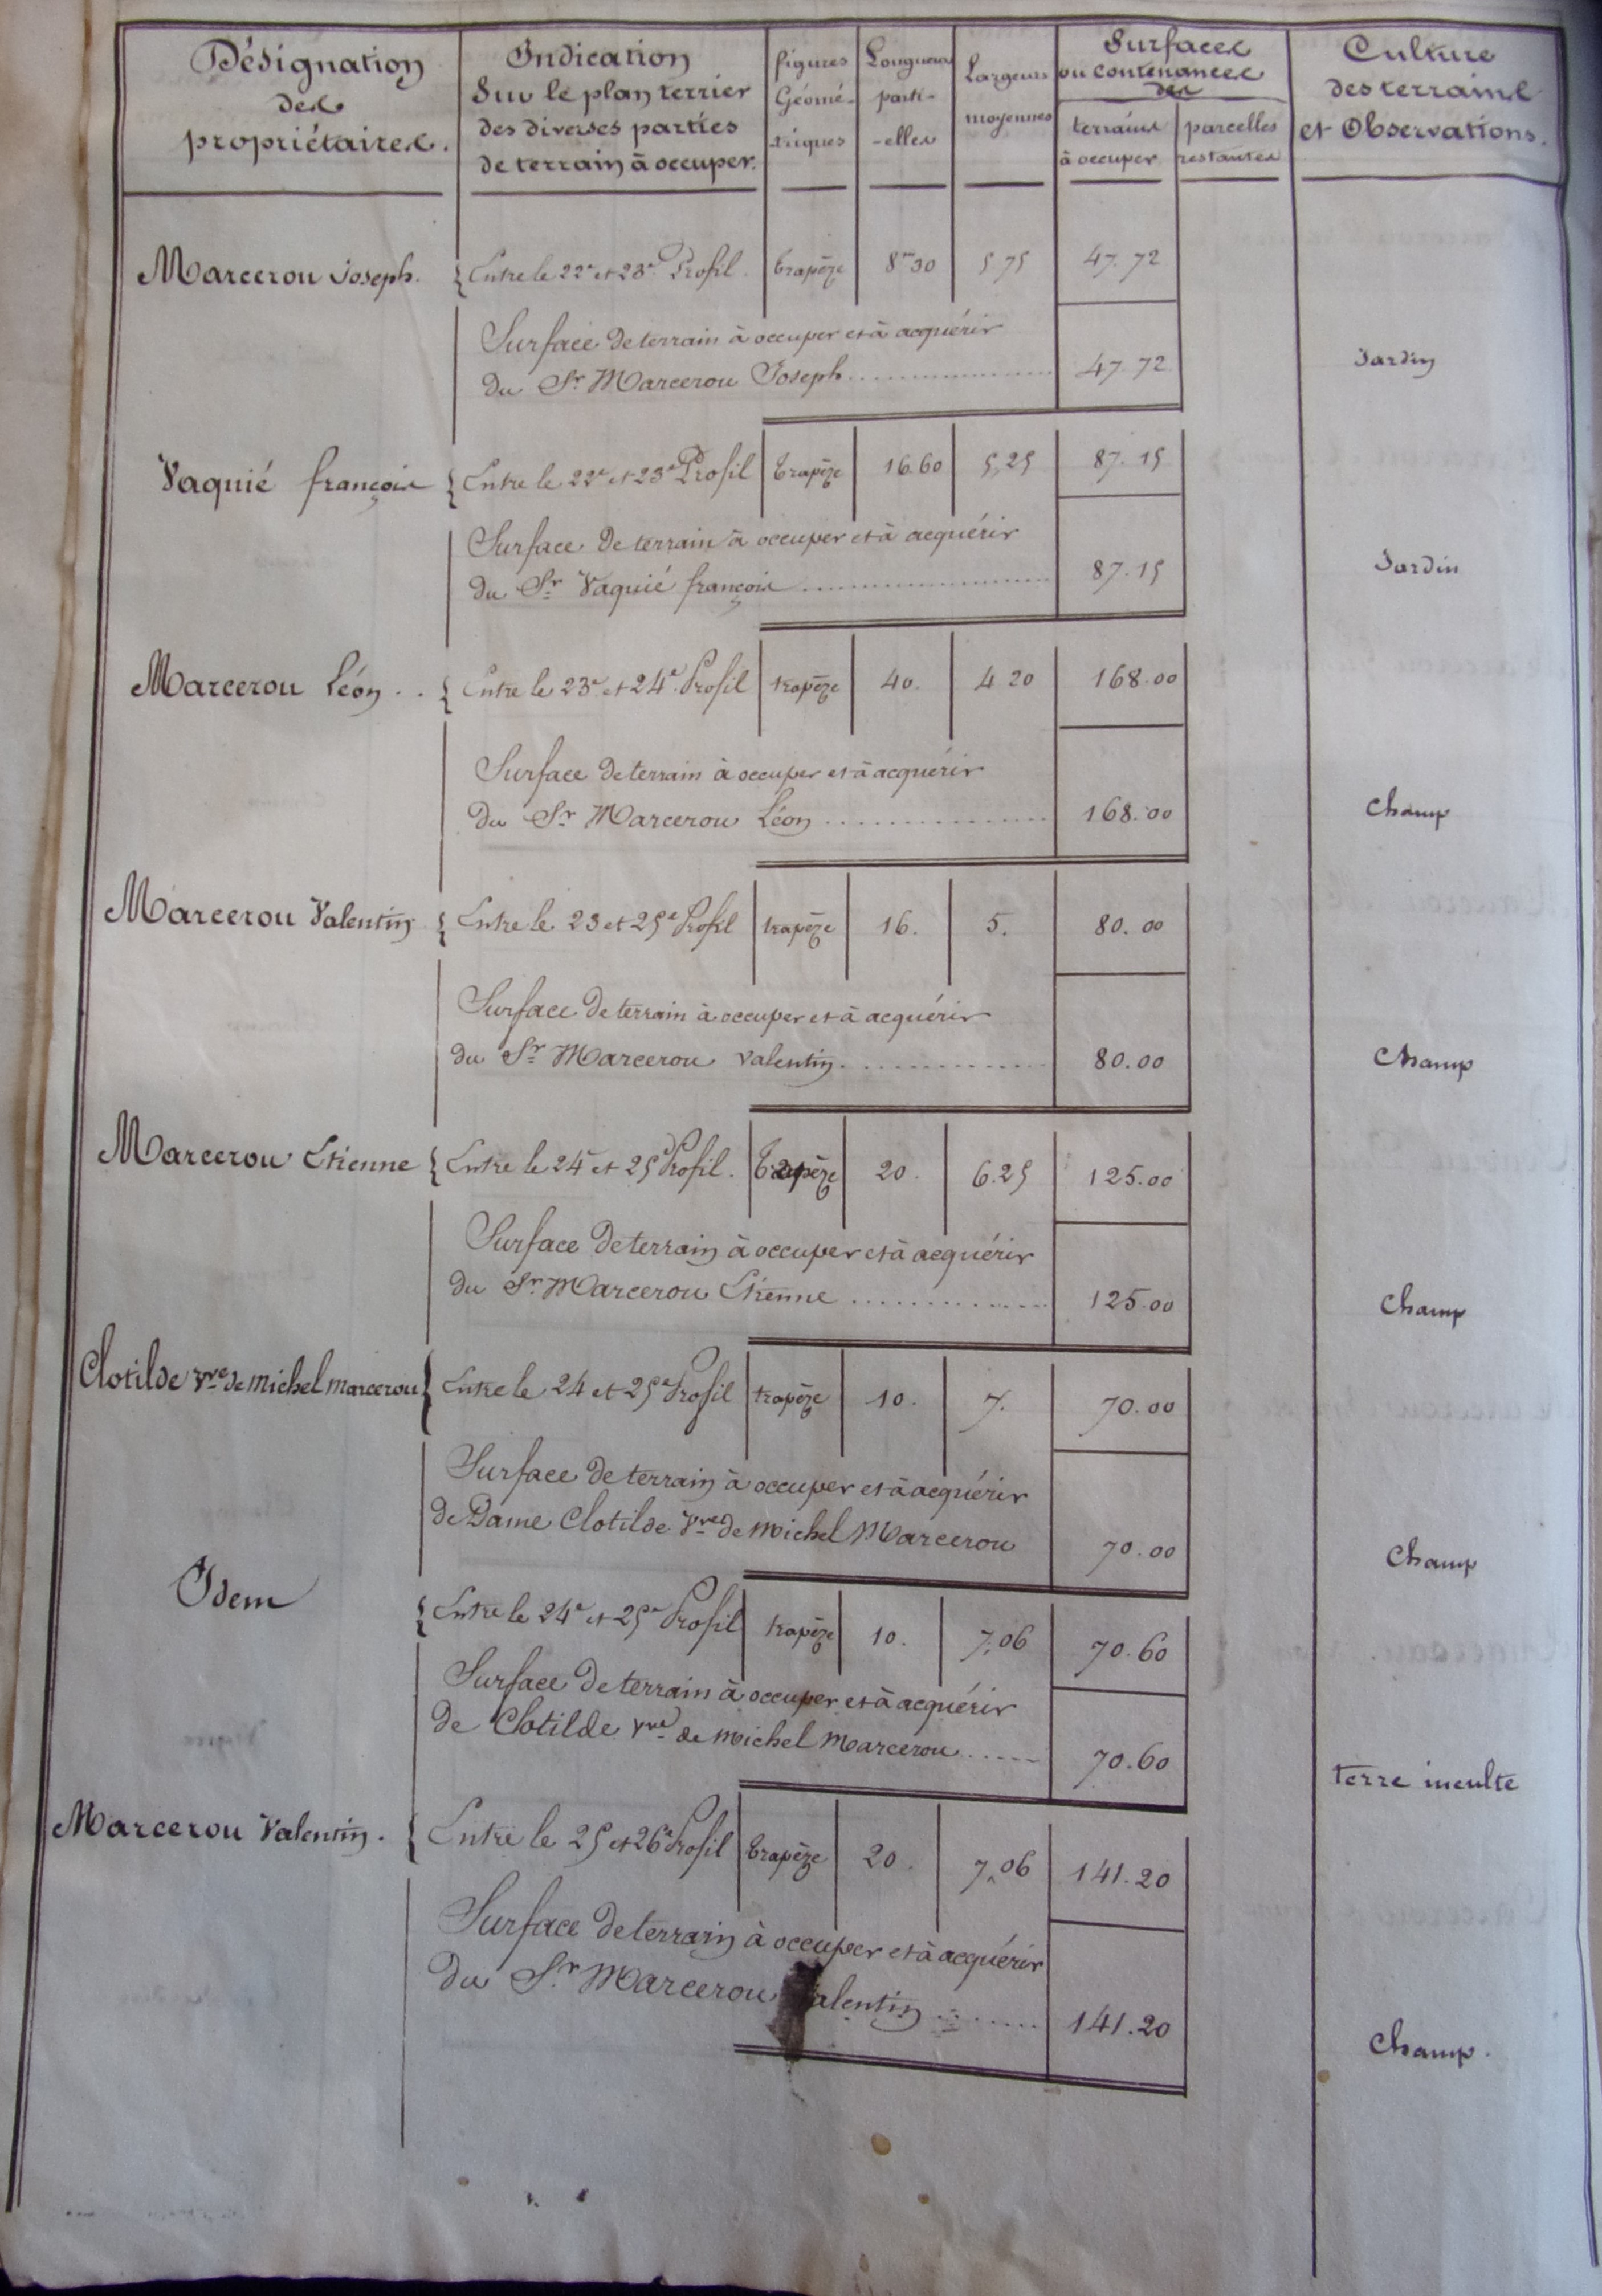 Désignation des propriétaires.
Indication Sur le plan terrier des diverses parties de terrain à occuper.
figures Géomé-triques
Longueurs parti-elles
Largeurs moyennes
Surfaces ou contenances des
terrains à occuper
parcelles restantes
Culture des terrains et Observations.
Marcerou Joseph. { Entre le 22e et 23e Profil. trapèze 8m30 5 75 47.72
Surface de terrain à occuper et à acquérir
du Sr Marcerou Joseph .................... 47.72 Jardin
Vaquié françois { Entre le 22e et 23e Profil trapèze 16.60 5,25 87.15
Surface de terrain à occuper et à acquérir
du Sr Vaquié françois .................... 87.15 Jardin
Marcerou Léon .. { Entre le 23e et 24e Profil trapèze 40. 4 20 168.00
Surface de terrain à occuper et à acquérir
du Sr Marcerou Léon ................ 168.00 Champ
Marcerou Valentin { Entre le 23 et 25e Profil trapèze 16. 5. 80.00
Surface de terrain à occuper et à acquérir
du Sr Marcerou Valentin ................ 80.00 Champ
Marcerou Etienne { Entre le 24e et 25e Profil. trapèze 20. 6.25 125.00
Surface de terrain à occuper et à acquérir
du Sr Marcerou Etienne .............. 125.00 Champ
Clotilde Vve de Michel Marcerou { Entre le 24 et 25e Profil trapèze 10. 7. 70.00
Surface de terrain à occuper et à acquérir
de Dame Clotilde Vve de Michel Marcerou 70.00 Champ
Idem { Entre le 24e et 25e Profil trapèze 10. 7,06 70.60
Surface de terrain à occuper et à acquérir
de Clotilde Vve de Michel Marcerou ...... 70.60 terre inculte
Marcerou Valentin. { Entre le 25 et 26e Profil trapèze 20. 7,06 141.20
Surface de terrain à occuper et à acquérir
du Sr Marcerou Valentin ........ 141.20 Champ.